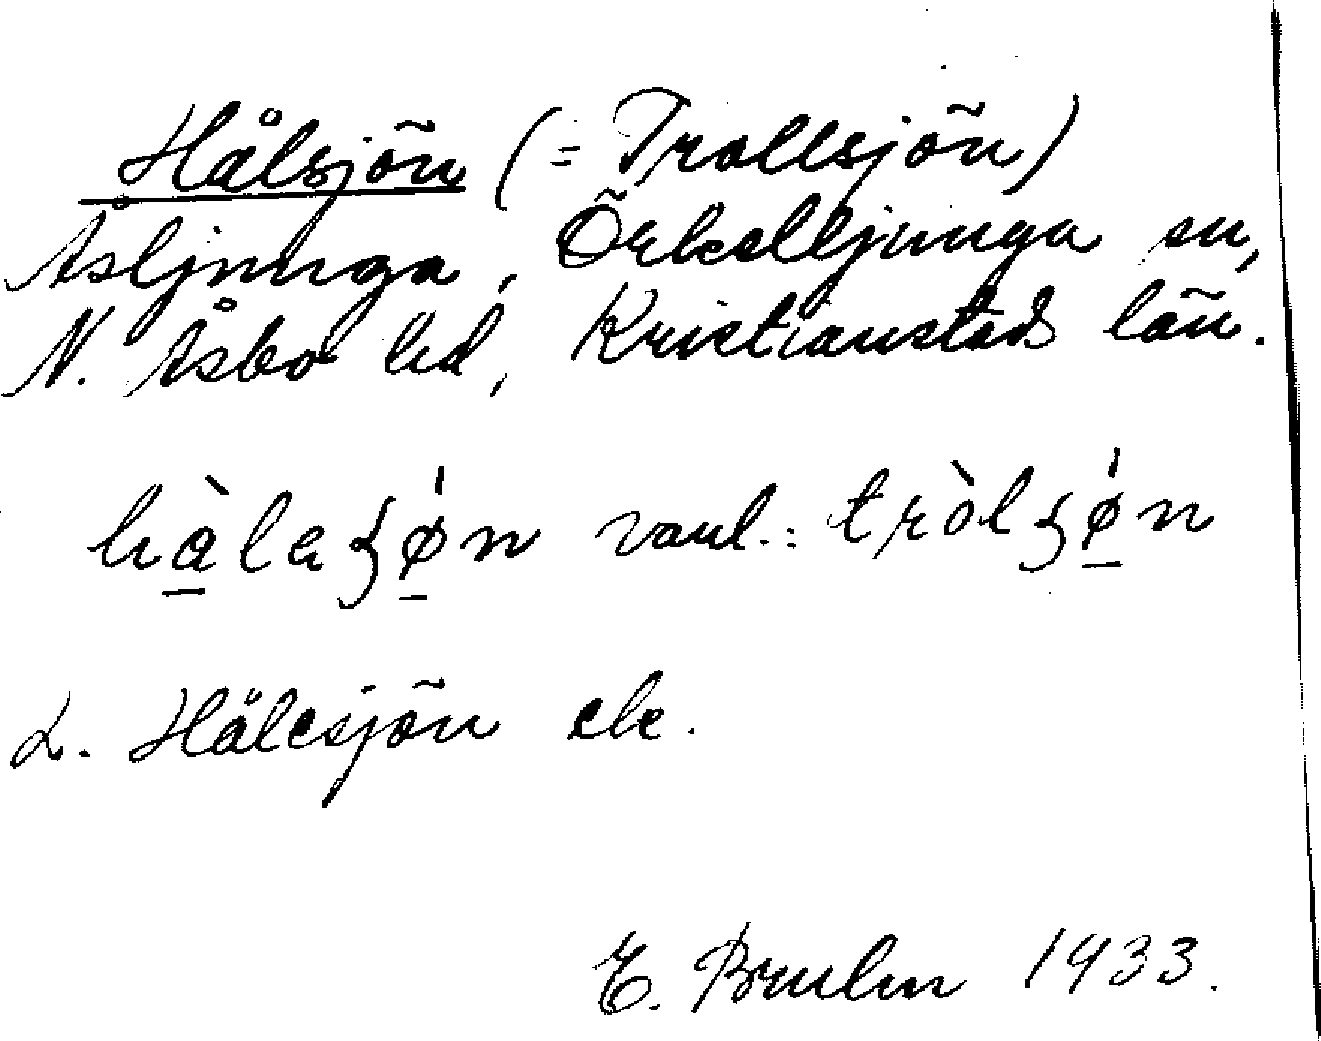 Hålsjön (= Trollsjön)
Åsljunga, Örkelljunga sn,
N. Åsbo hd, Kristianstads län.
hàlaʂø̀n vanl.: tròlʂø̀n
L. Hålesjön ek.
E. Bruhn 1933.